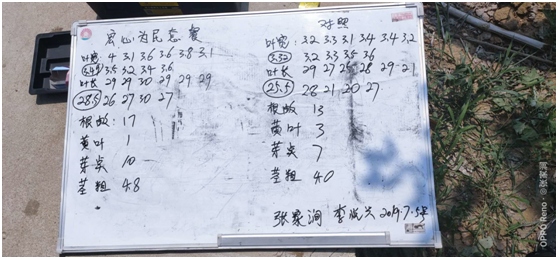 为民套餐
叶宽: 4 3.1 3.6 3.6 3.8 3.1
3.45 3.5 3.2 3.4 3.6
叶长 29 29 30 29 29 29
28.5 26 27 30 27
根数: 17
黄叶 1
芽点 10
茎粗 48
对照
叶宽: 3.2 3.3 3.1 3.4 3.4 3.2
3.32 3.2 3.3 3.5 3.6
叶长 29 27 25 28 29 21
25.5 28 21 20 27
根数 13
黄叶 3
芽点 7
茎粗 40
2019.7.5
OPPO Reno · @张家润